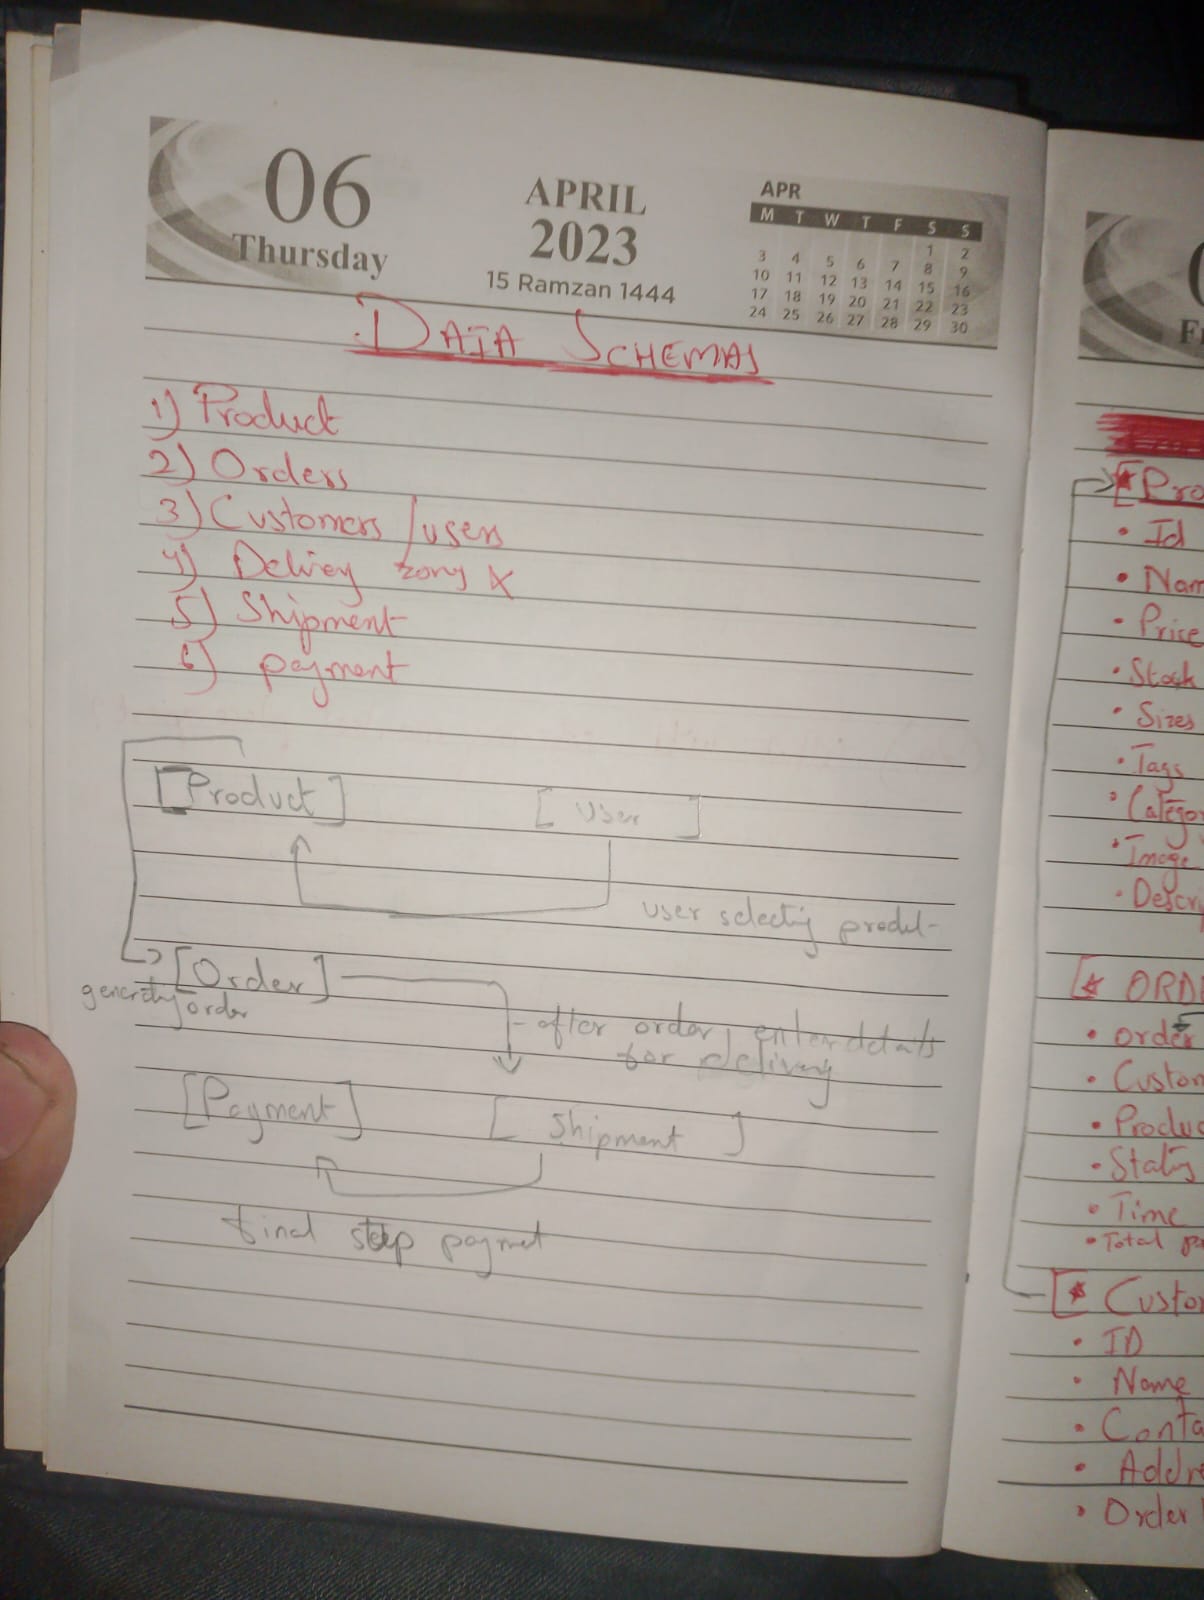 06
Thursday
APRIL
2023
15 Ramzan 1444
APR
M T W T F S S
1 2
3 4 5 6 7 8 9
10 11 12 13 14 15 16
17 18 19 20 21 22 23
24 25 26 27 28 29 30
DATA SCHEMAS
1) Product
2) Orders
3) Customers / users
4) Delivey X
5) Shipment
6) payment
[Product] [User]
user selecting
[Order]
order
- after order, enter details
for delivery
[Payment] [Shipment]
final step
• Id
• Nam
• Price
• Stock
• Sizes
• Tags
• Catego
• Image
• Descr
[* ORD
• order
• Custom
• Produc
• Status
• Time
• Total
[* Custo
• ID
• Name
• Conta
• Addre
• Order